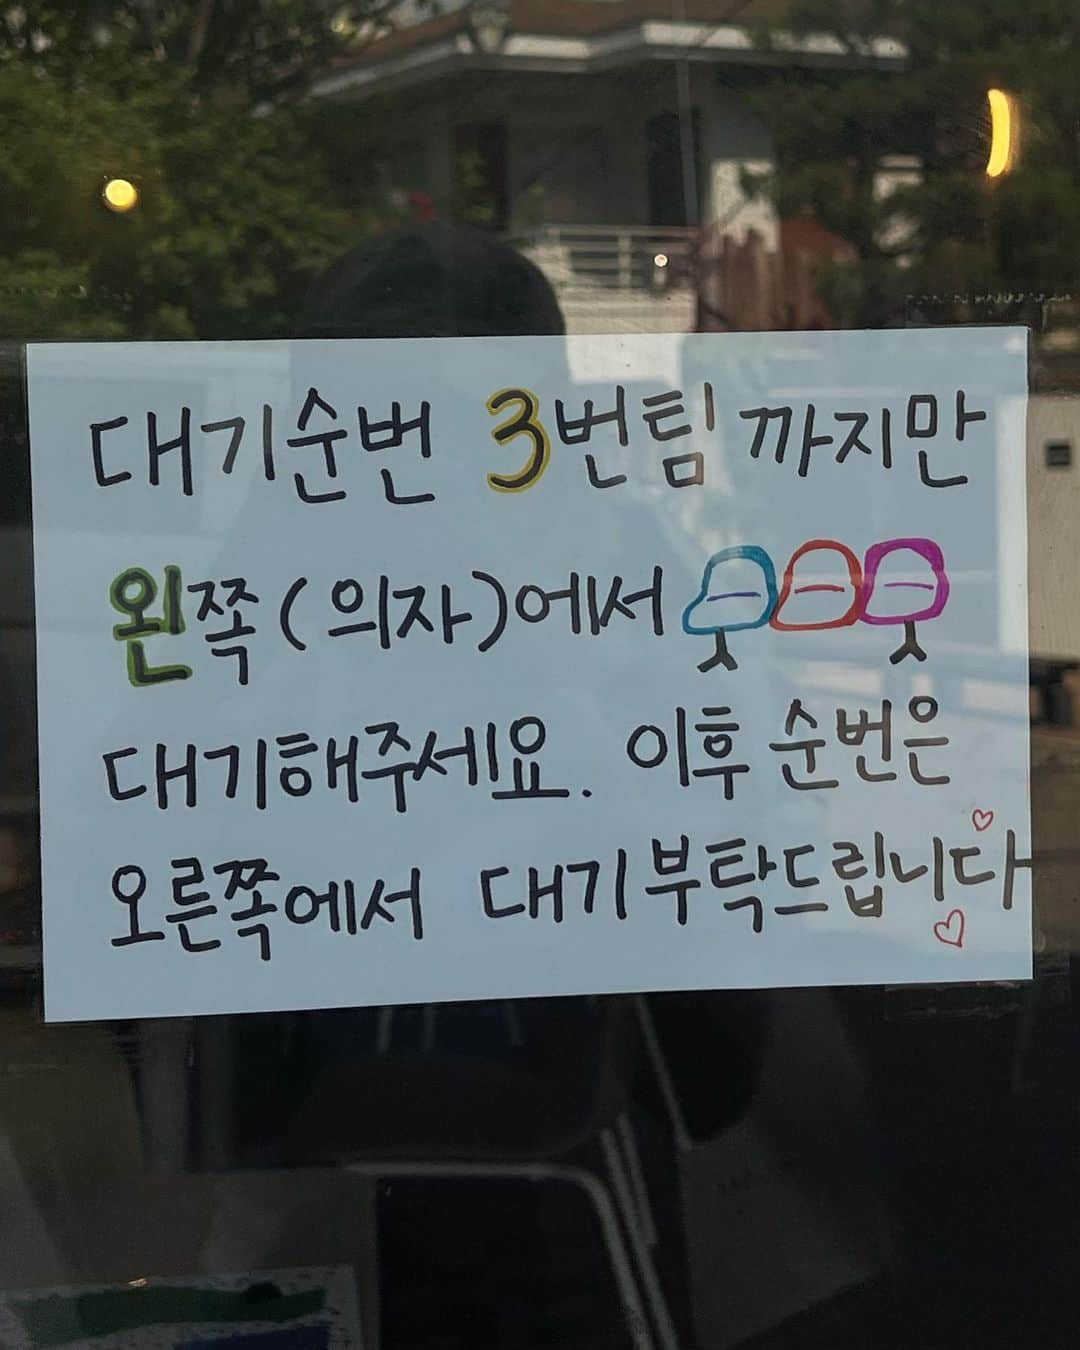 대기순번 3번팀 까지만
왼쪽(의자)에서
대기해주세요. 이후 순번은
오른쪽에서 대기 부탁드립니다